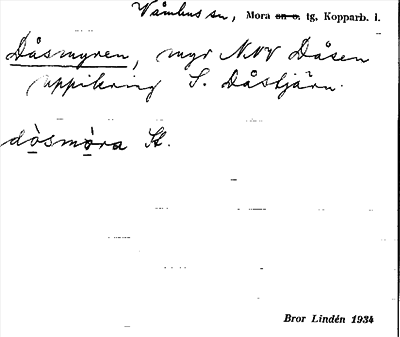 Våmhus sn, Mora sn o. tg, Kopparb. l.
Dåsmyren, myr NNV Dåsen
uppikring S. Dåstjärn.
dòsmòra St.
Bror Lindén 1934